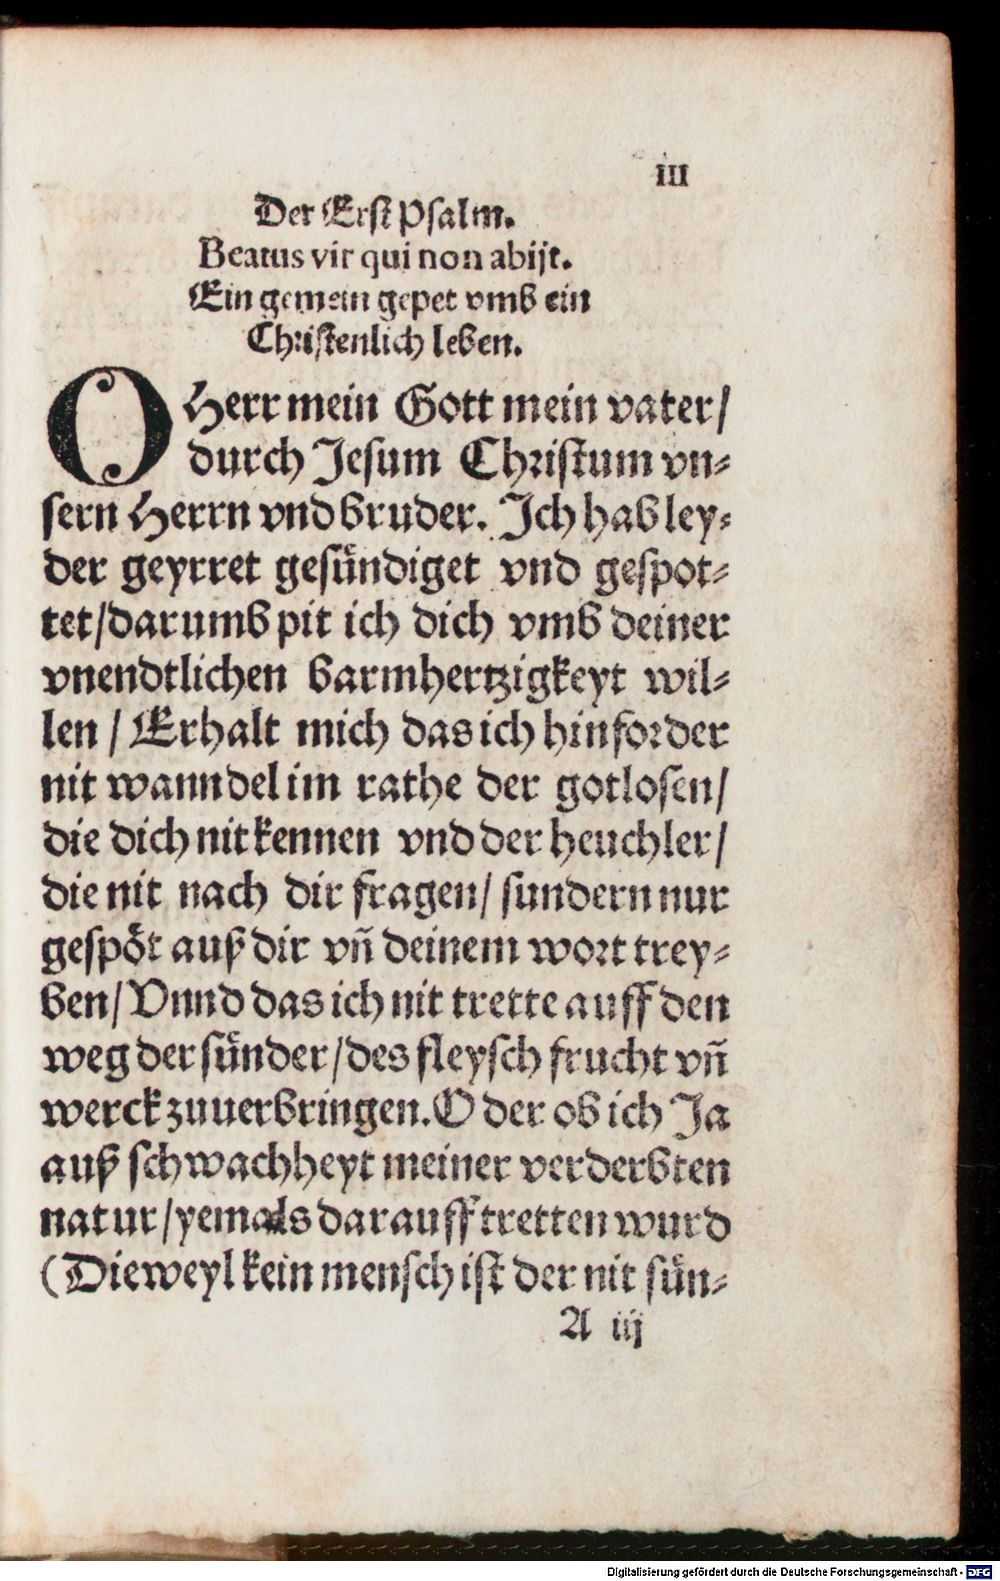 III
Der Erst Psalm.
Beatus vir qui non abijt.
Ein gemein gepet vmb ein
Christenlich leben.
O Herr mein Gott mein vater/
durch Jesum Christum vn⸗
sern Herrn vnd bruder. Ich hab ley⸗
der geyrret gesündiget vnd gespot⸗
tet/darumb pit ich dich vmb deiner
vnendtlichen barmhertzigkeyt wil⸗
len / Erhalt mich das ich hinforder
nit wanndel im rathe der gotlosen/
die dich nit kennen vnd der heuchler/
die nit nach dir fragen/ sundern nur
gespöt auß dir vñ deinem wort trey⸗
ben/ Vnnd das ich nit trette auff den
weg der sünder/des fleysch frucht vñ
werck zuuerbringen. O der ob ich Ja
auß schwachheyt meiner verderbten
natur/yemals darauff tretten wurd
(Dieweyl kein mensch ist der nit sün⸗
A iij
Digitalisierung gefördert durch die Deutsche Forschungsgemeinschaft - DFG